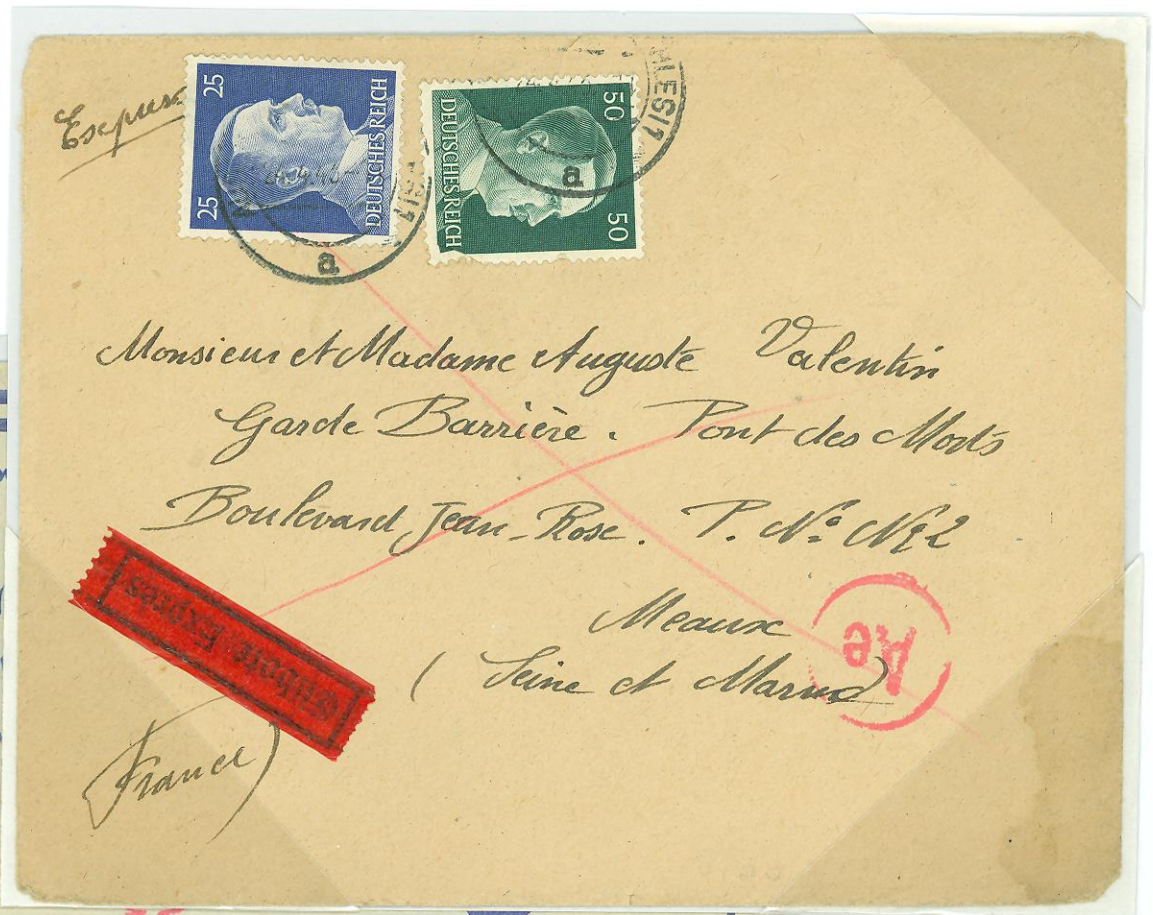 Expres
25 25
DEUTSCHES REICH
50 50
DEUTSCHES REICH
a
a
Monsieur et Madame Auguste Valentin
Garde Barrière. Pont des Morts
Boulevard Jean-Rose. P. N°
Meaux
(Seine et Marne)
Ae
Eilbote Exprès
(France)